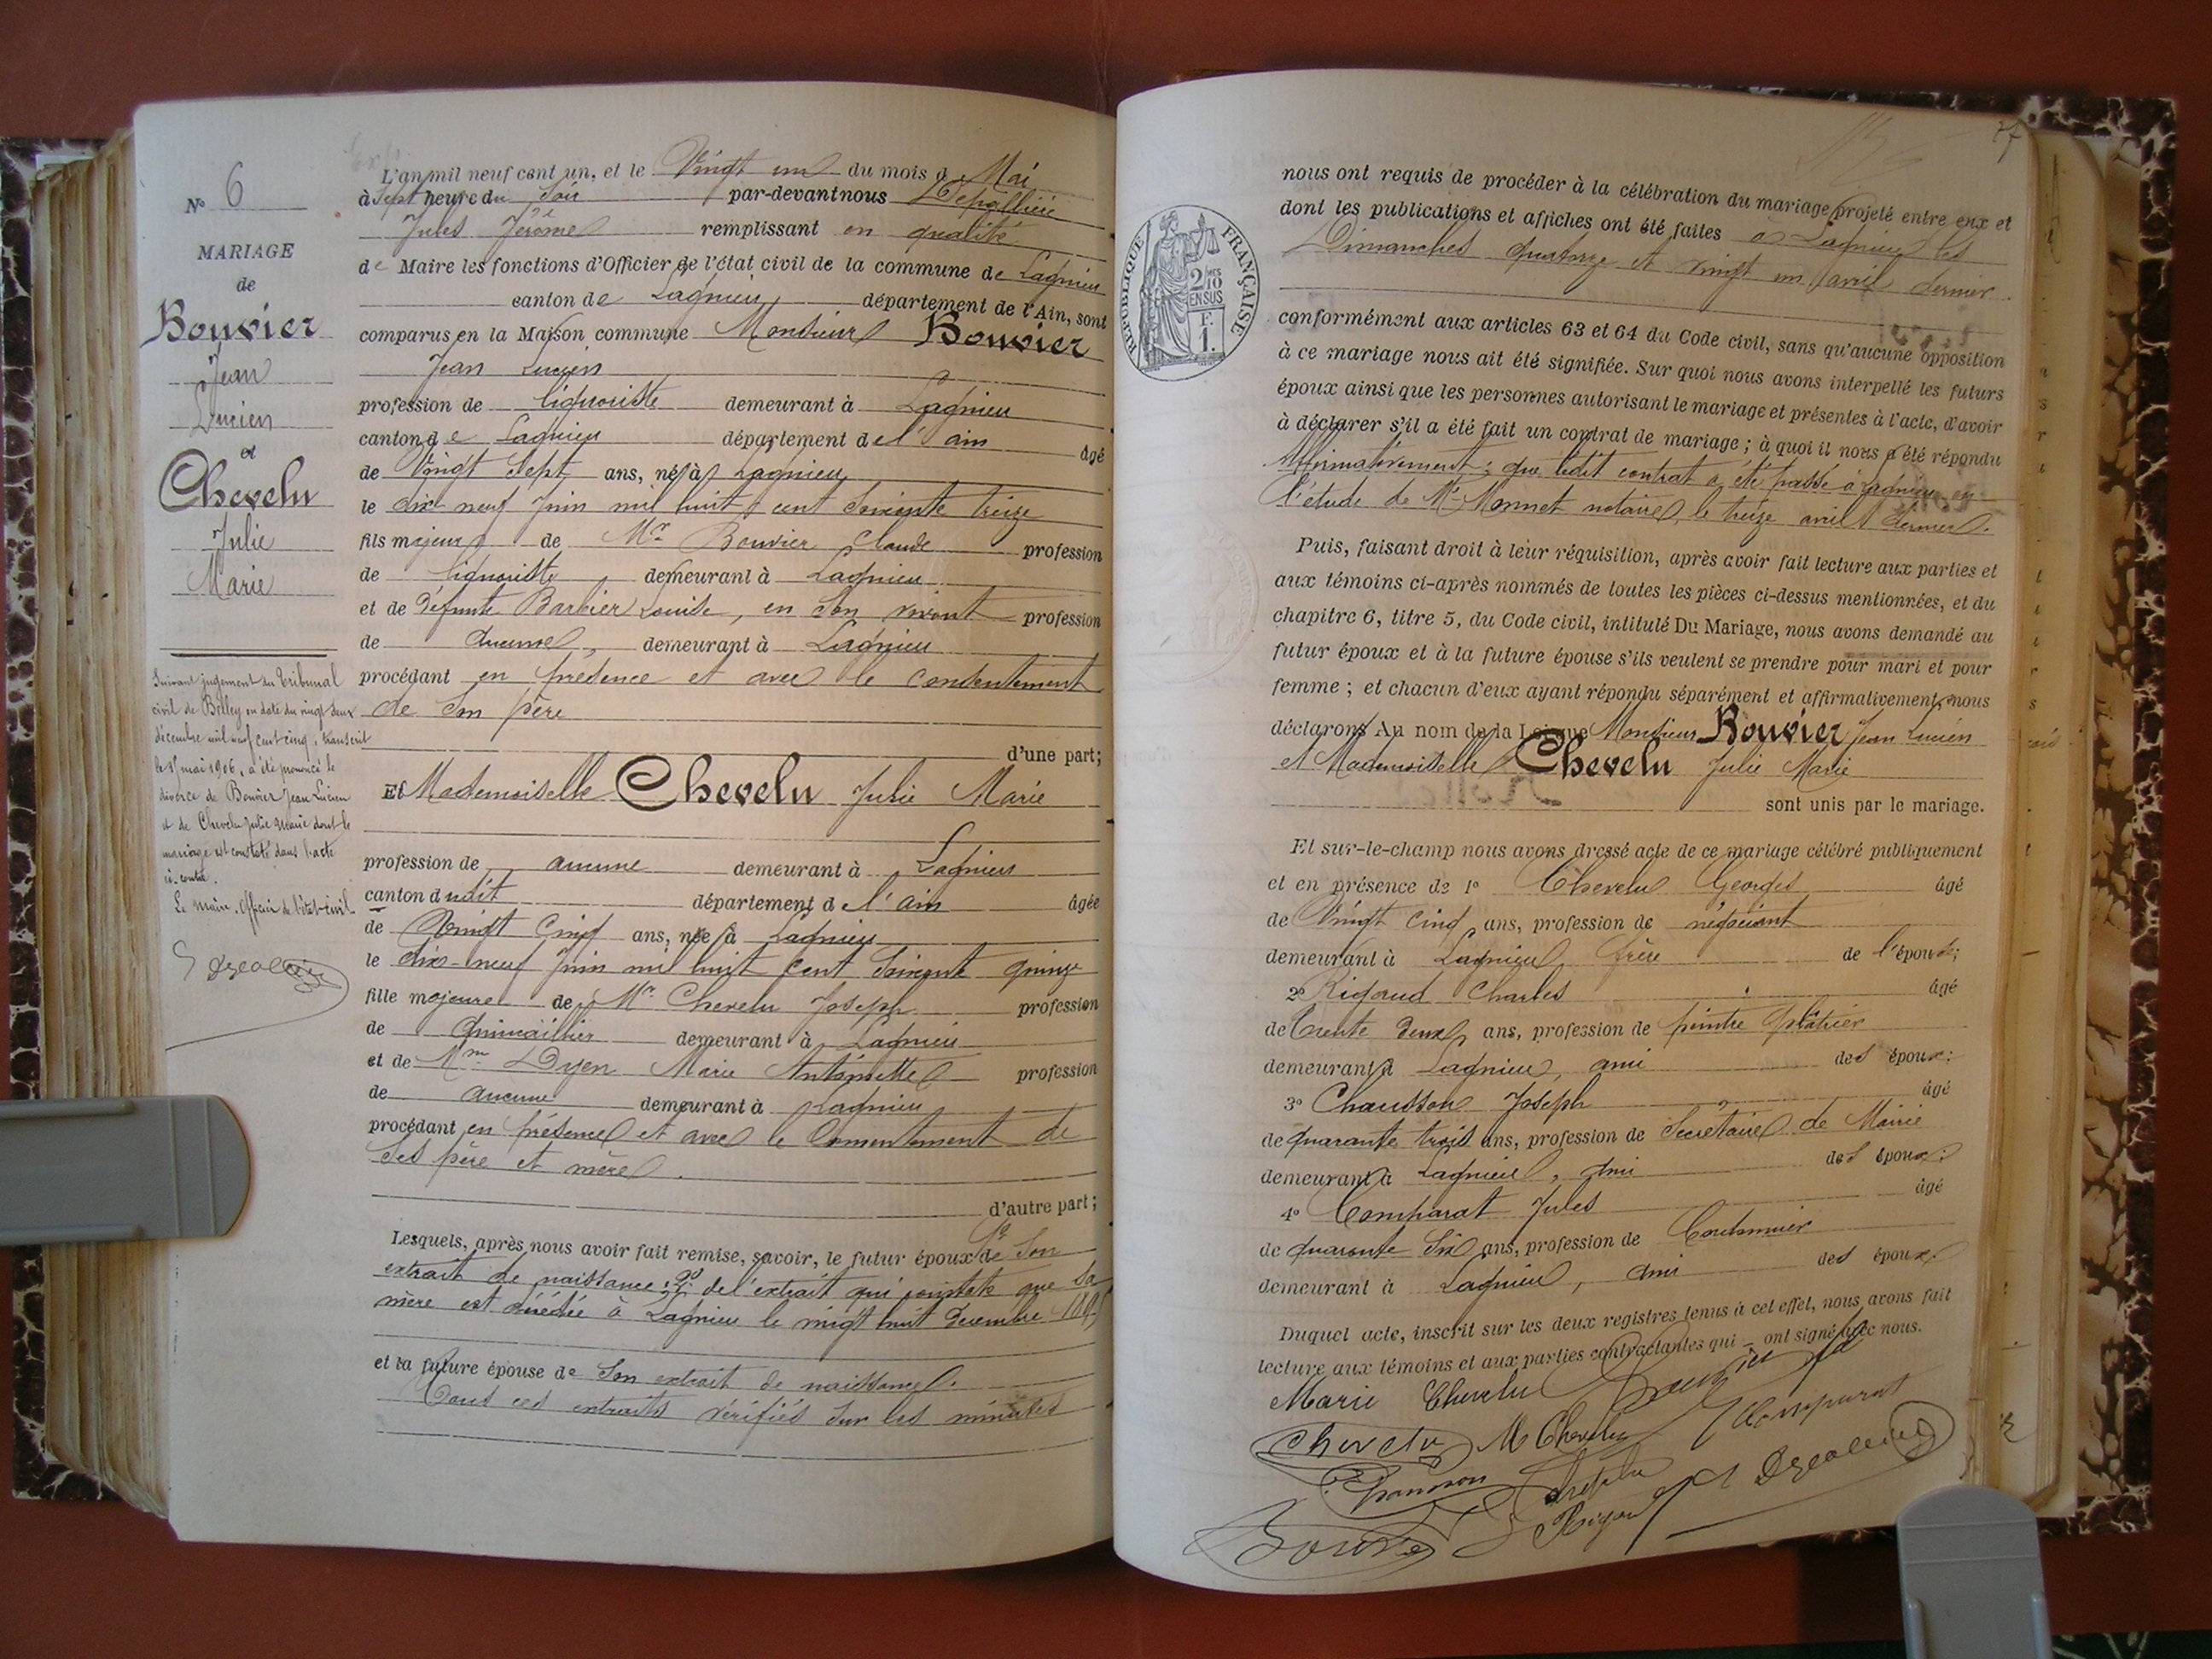 N° 6
MARIAGE
de
Bouvier
Jean
Lucien
et
Chevelu
Julie
Marie
Suivant jugement du Tribunal
civil de Belley en date du vingt deux
décembre mil neuf cent cinq, transcrit
le mai 1906, a été prononcé le
divorce de Bouvier Jean Lucien
et de Chevelu Julie Marie dont le
mariage est constaté dans l'acte
ci-contre.
Le maire, Officier de l'état-civil
L'an mil neuf cent un, et le Vingt un du mois de Mai
à Sept heure du Soir par-devant nous
Jules Jérôme remplissant en qualité
de Maire les fonctions d'Officier de l'état civil de la commune de Lagnieu
canton de Lagnieu département de l'Ain, sont
comparus en la Maison commune Monsieur Bouvier
Jean Lucien
profession de liquoriste demeurant à Lagnieu
canton de Lagnieu département de l'ain âgé
de Vingt Sept ans, né à Lagnieu
le dix neuf Juin mil huit cent Soixante treize
fils majeur de Mr Bouvier Claude profession
de liquoriste demeurant à Lagnieu
et de défunte Barbier Louise, en son vivant profession
de aucune, demeurant à Lagnieu
procédant en présence et avec le consentement
de son père
d'une part;
Et Mademoiselle Chevelu Julie Marie
profession de aucune demeurant à Lagnieu
canton dudit département de l'ain âgée
de Vingt Cinq ans, née à Lagnieu
le dix-neuf Juin mil huit cent Soixante quinze
fille majeure de Mr Chevelu Joseph profession
de Quincaillier demeurant à Lagnieu
et de Mme Dyen Marie Antoinette profession
de aucune demeurant à Lagnieu
procédant en présence et avec le Consentement de
ses père et mère.
d'autre part;
Lesquels, après nous avoir fait remise, savoir, le futur époux 1° de Son
extrait de naissance; 2° de l'extrait qui constate que sa
mère est décédée à Lagnieu le vingt huit Décembre
et la future épouse de Son extrait de naissance.
Tous ces extraits vérifiés sur les minutes
27
RÉPUBLIQUE FRANÇAISE
2/10 EN SUS
F.
1.
nous ont requis de procéder à la célébration du mariage projeté entre eux et
dont les publications et affiches ont été faites à Lagnieu les
Dimanches quatorze et vingt un avril dernier.
conformément aux articles 63 et 64 du Code civil, sans qu'aucune opposition
à ce mariage nous ait été signifiée. Sur quoi nous avons interpellé les futurs
époux ainsi que les personnes autorisant le mariage et présentes à l'acte, d'avoir
à déclarer s'il a été fait un contrat de mariage; à quoi il nous a été répondu
Affirmativement; que ledit contrat a été passé à Lagnieu en
l'étude de Me Monnet notaire, le treize avril dernier.
Puis, faisant droit à leur réquisition, après avoir fait lecture aux parties et
aux témoins ci-après nommés de toutes les pièces ci-dessus mentionnées, et du
chapitre 6, titre 5, du Code civil, intitulé Du Mariage, nous avons demandé au
futur époux et à la future épouse s'ils veulent se prendre pour mari et pour
femme; et chacun d'eux ayant répondu séparément et affirmativement, nous
déclarons Au nom de la Loi que Monsieur Bouvier Jean Lucien
et Mademoiselle Chevelu Julie Marie
sont unis par le mariage.
Et sur-le-champ nous avons dressé acte de ce mariage célébré publiquement
et en présence de 1° Chevelu Georges âgé
de Vingt cinq ans, profession de négociant
demeurant à Lagnieu, frère de l'épouse;
2° Rigaud Charles âgé
de Trente deux ans, profession de peintre plâtrier
demeurant à Lagnieu, ami des époux;
3° Chausson Joseph âgé
de quarante trois ans, profession de Secrétaire de Mairie
demeurant à Lagnieu, ami des époux;
4° Comparat Jules âgé
de quarante Six ans, profession de Cordonnier
demeurant à Lagnieu, ami des époux.
Duquel acte, inscrit sur les deux registres tenus à cet effet, nous avons fait
lecture aux témoins et aux parties contractantes qui ont signé avec nous.
Marie Chevelu Bouvier fd
Chevelu M Chevelu J Comparat
Chausson Chevelu
Bouvier Rigaud